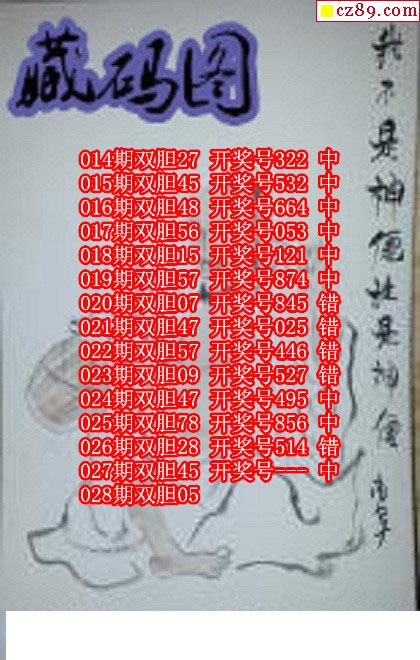 cz89.com
藏码图
014期双胆27 开奖号322 中
015期双胆45 开奖号532 中
016期双胆48 开奖号664 中
017期双胆56 开奖号053 中
018期双胆15 开奖号121 中
019期双胆57 开奖号874 中
020期双胆07 开奖号845 错
021期双胆47 开奖号025 错
022期双胆57 开奖号446 错
023期双胆09 开奖号527 错
024期双胆47 开奖号495 中
025期双胆78 开奖号856 中
026期双胆28 开奖号514 错
027期双胆45 开奖号--- 中
028期双胆05
我不是神仙胜是神仙